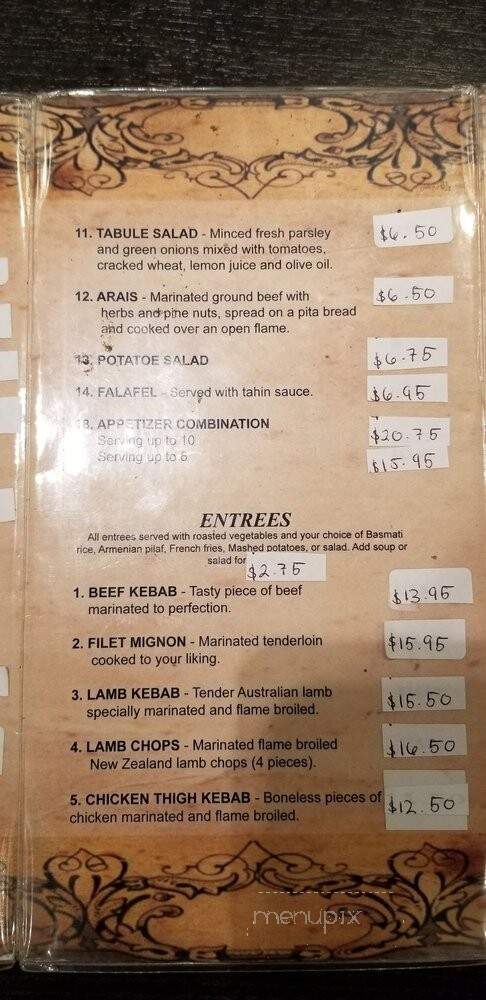 11. TABULE SALAD - Minced fresh parsley $6.50
and green onions mixed with tomatoes,
cracked wheat, lemon juice and olive oil.
12. ARAIS - Marinated ground beef with $6.50
herbs and pine nuts, spread on a pita bread
and cooked over an open flame.
13. POTATOE SALAD $6.75
14. FALAFEL - Served with tahin sauce. $6.95
18. APPETIZER COMBINATION
Serving up to 10 $20.75
Serving up to 6 $15.95
ENTREES
All entrees served with roasted vegetables and your choice of Basmati
rice, Armenian pilaf, French fries, Mashed potatoes, or salad. Add soup or
salad for $2.75
1. BEEF KEBAB - Tasty piece of beef $13.95
marinated to perfection.
2. FILET MIGNON - Marinated tenderloin $15.95
cooked to your liking.
3. LAMB KEBAB - Tender Australian lamb $15.50
specially marinated and flame broiled.
4. LAMB CHOPS - Marinated flame broiled $16.50
New Zealand lamb chops (4 pieces).
5. CHICKEN THIGH KEBAB - Boneless pieces of $12.50
chicken marinated and flame broiled.
menupix